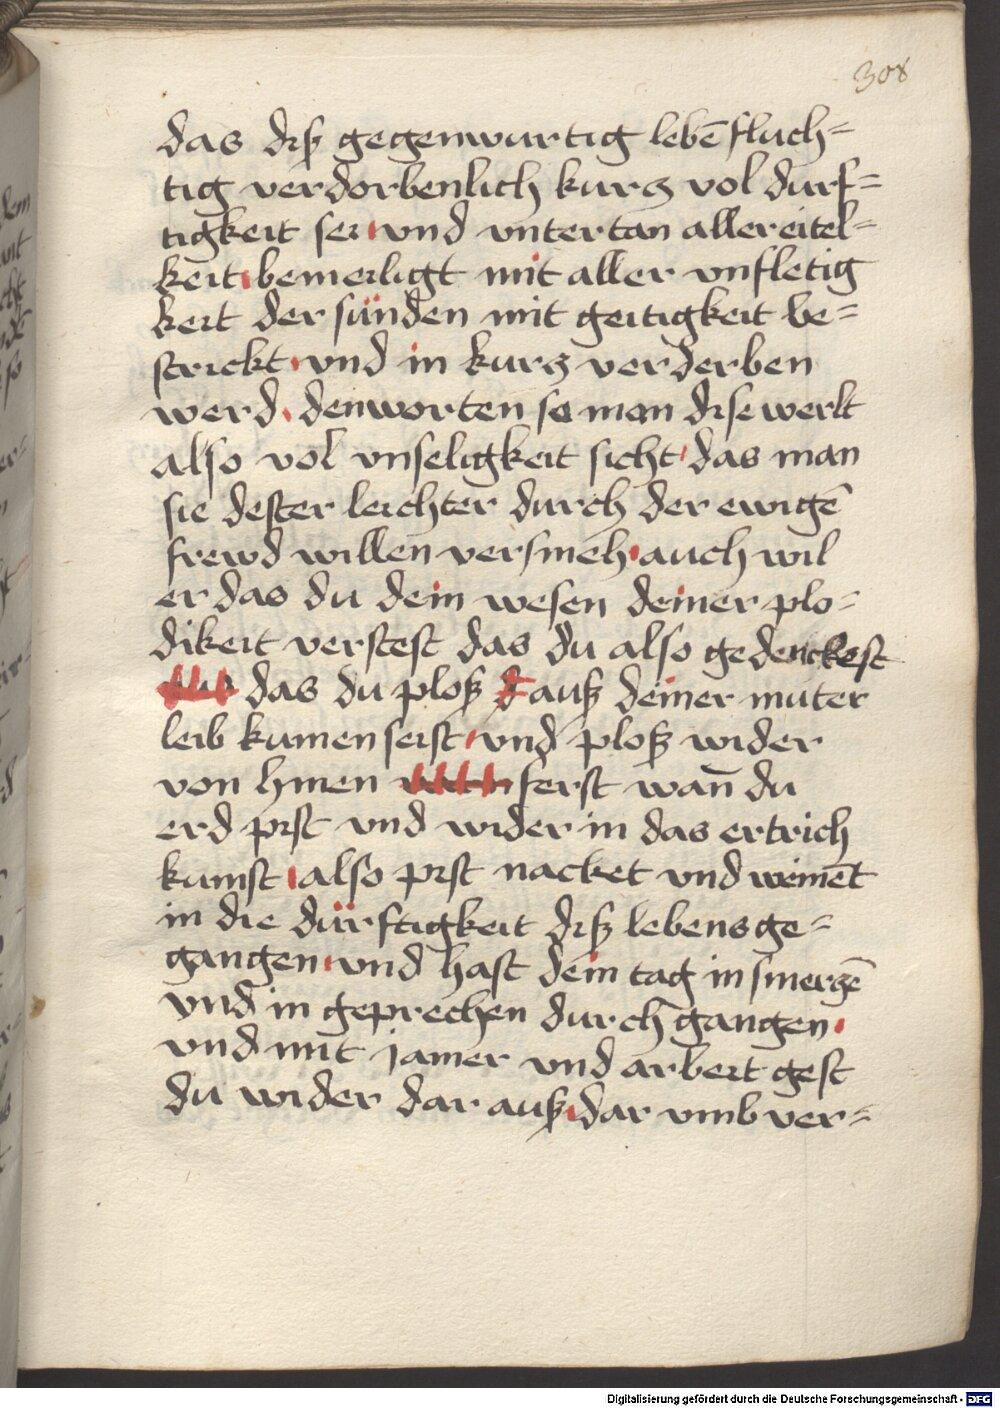 308
das diß gegenwurtig lebē fluch=
tig verdorbenlich kurz vol durf=
tigkeit sei vnd vntertan aller eitel=
keit bemeiligt mit aller vnfletig
keit der sünden mit geitigkeit be=
strickt vnd in kurz verderben
werd denworten so man dise werlt
also vol vnseligkeit sicht das man
sie dester leichter durch der ewigē
frewd willen versmeh auch wil
er das du dein wesen deiner plo=
dikeit verstest das du also gedenckest
das du ploß auß deiner muter
leib kumen seist vnd ploß wider
von hinen ferst wan̄ du
erd pist vnd wider in das ertrich
kumst also pist nacket vnd weinēt
in die dürftigkeit diß lebens ge=
gangen vnd hast dein tag in smerzē
vnd in geprechen durch gangen
vnd mit jamer vnd arbeit gest
du wider dar auß dar vmb ver=
Digitalisierung gefördert durch die Deutsche Forschungsgemeinschaft - DFG